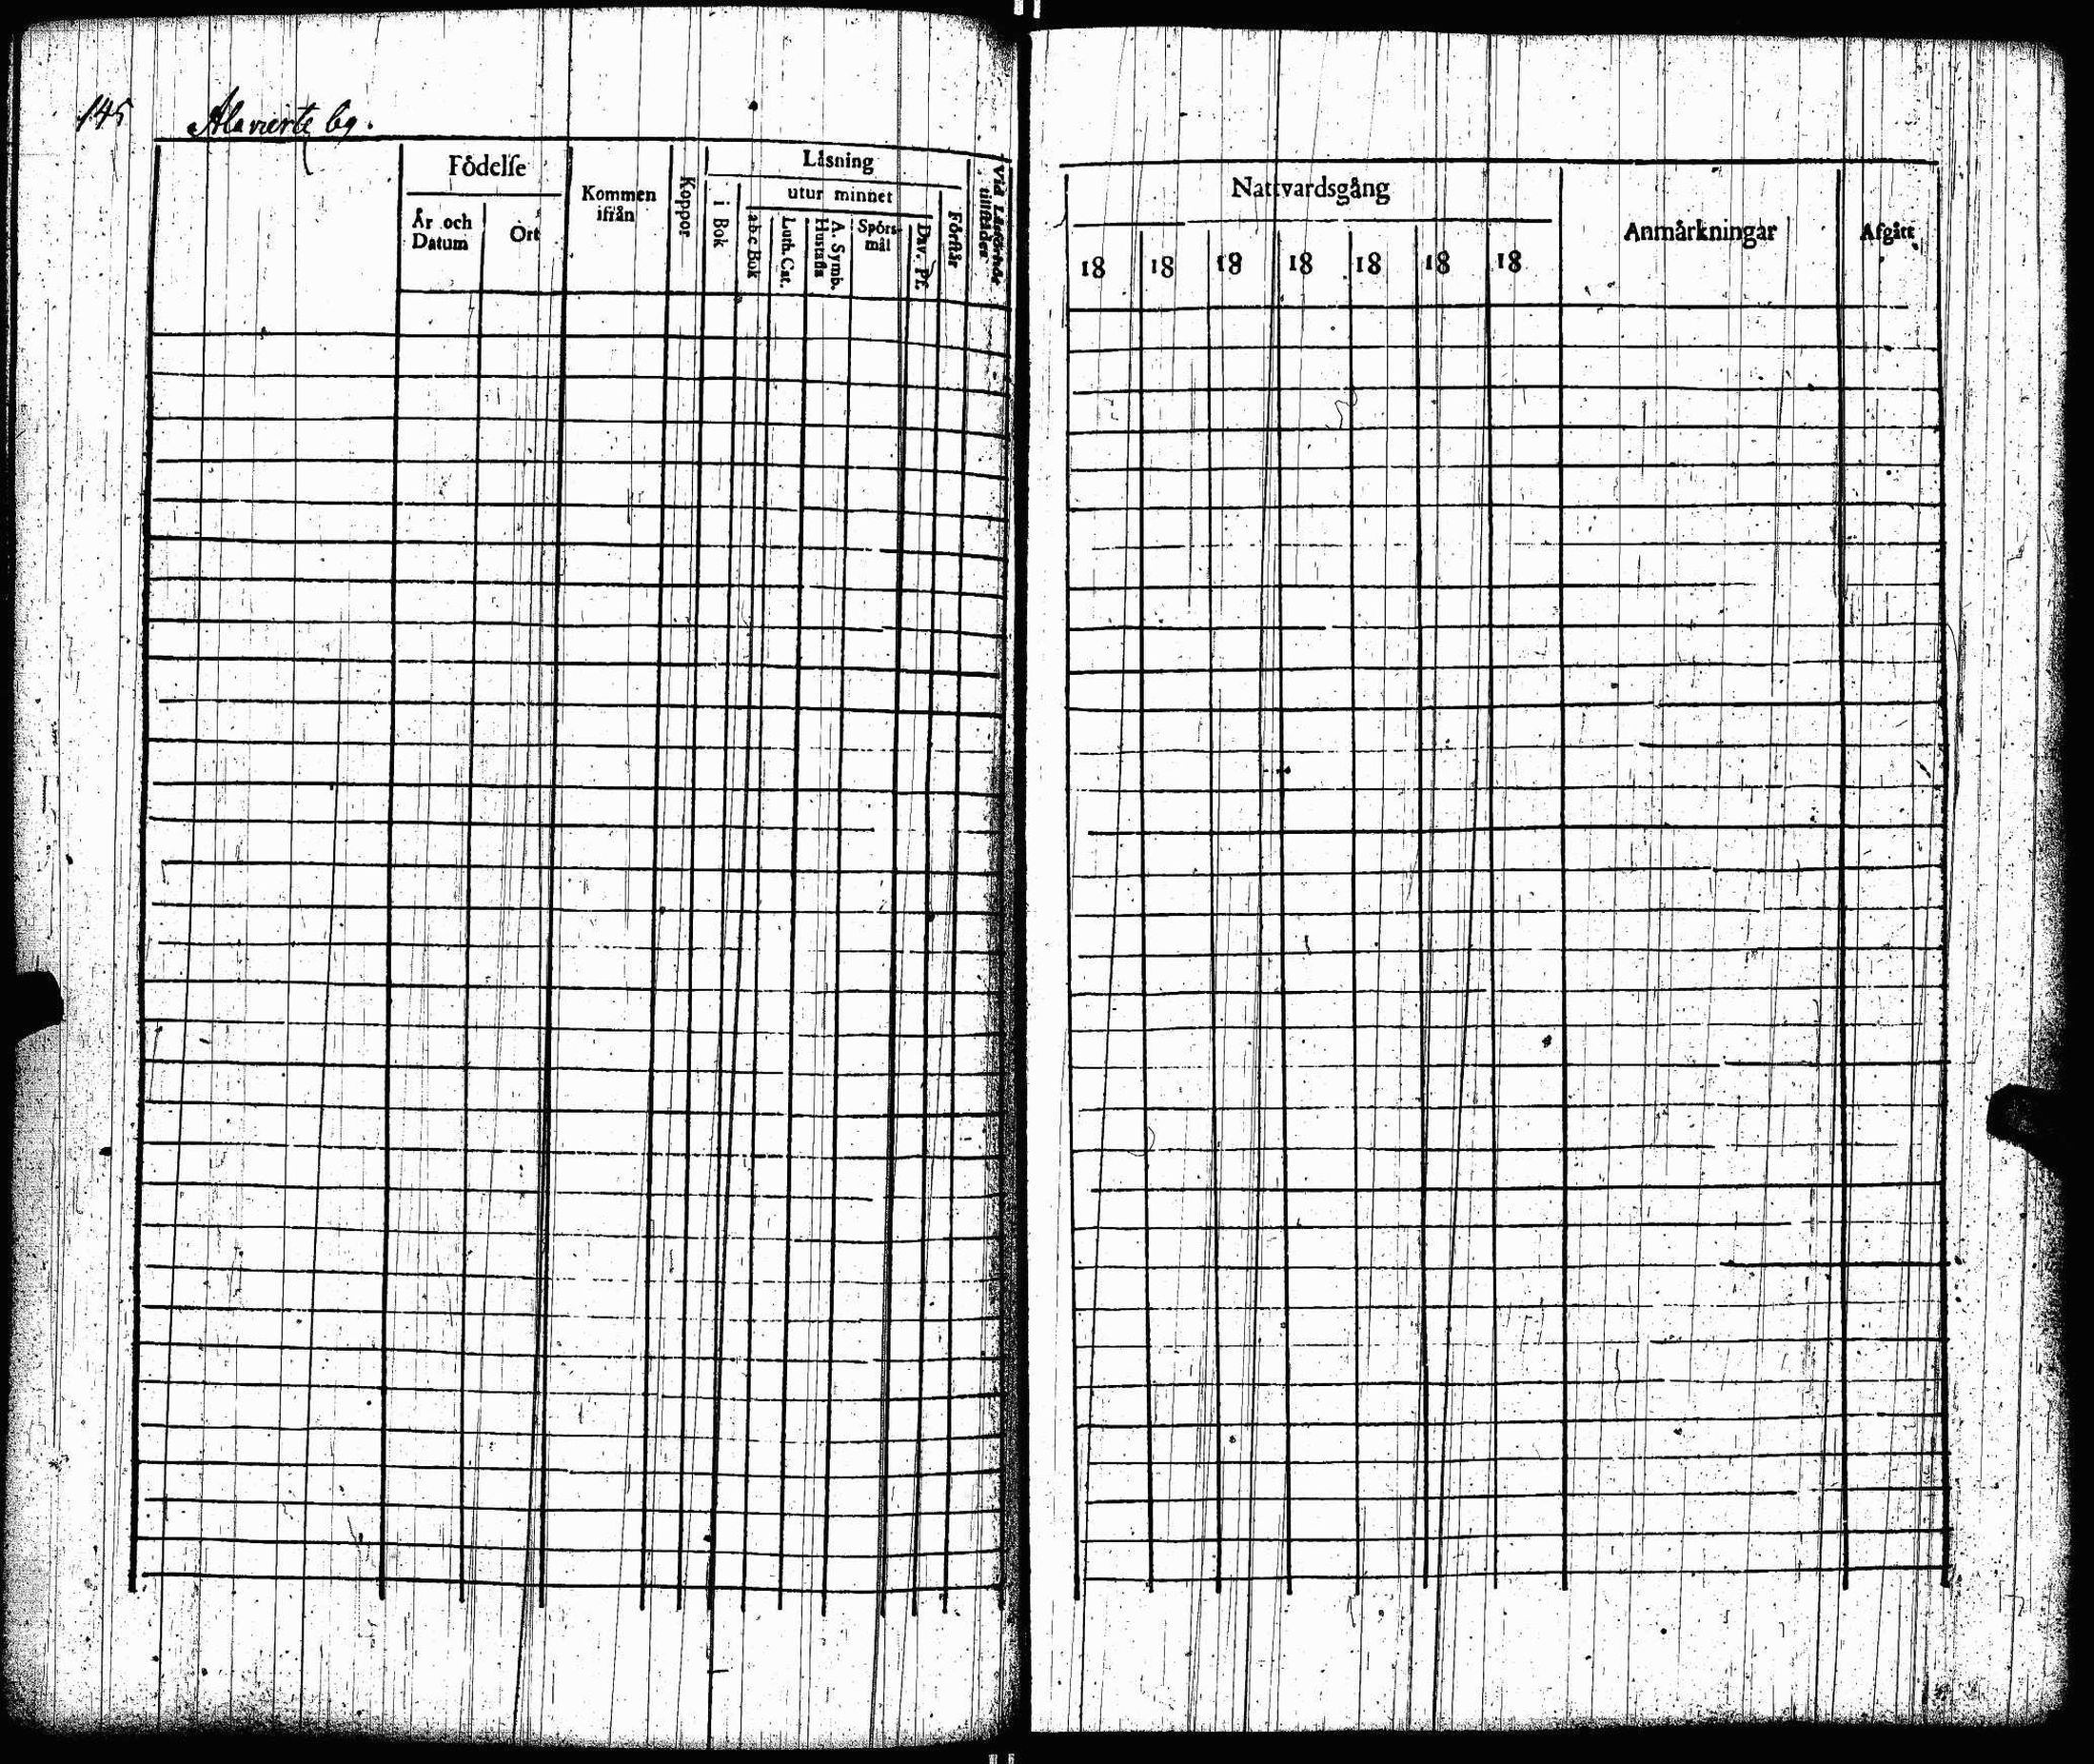 145 Alavierte by.
Födelse
År och Datum
Ort
Kommen ifrån
Koppor
Låsning
i Bok
utur minnet
a b c Bok
Luth. Cat.
A. Symb. Hustafla
Spörsmål
Dav. Ps.
Förstår
Vid
Nattvardsgång
18 18 18 18 18 18 18
Anmårkningar
Afgått